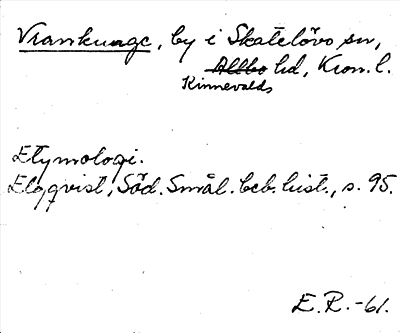 Vrankunge, by i Skatelövs sn,
Allbo hd, Kron. l.
Kinnevalds
Etymologi.
Elgqvist, Söd. Smål. beb. hist., s. 95.
E. R. -61.